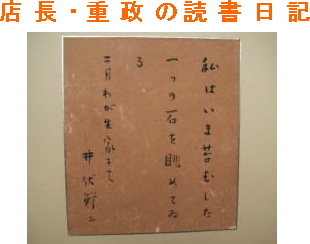 店長・重政の読書日記
私はいま苔むした
一つの石を眺めてゐ
る
二月わが生家にて
井伏鱒二